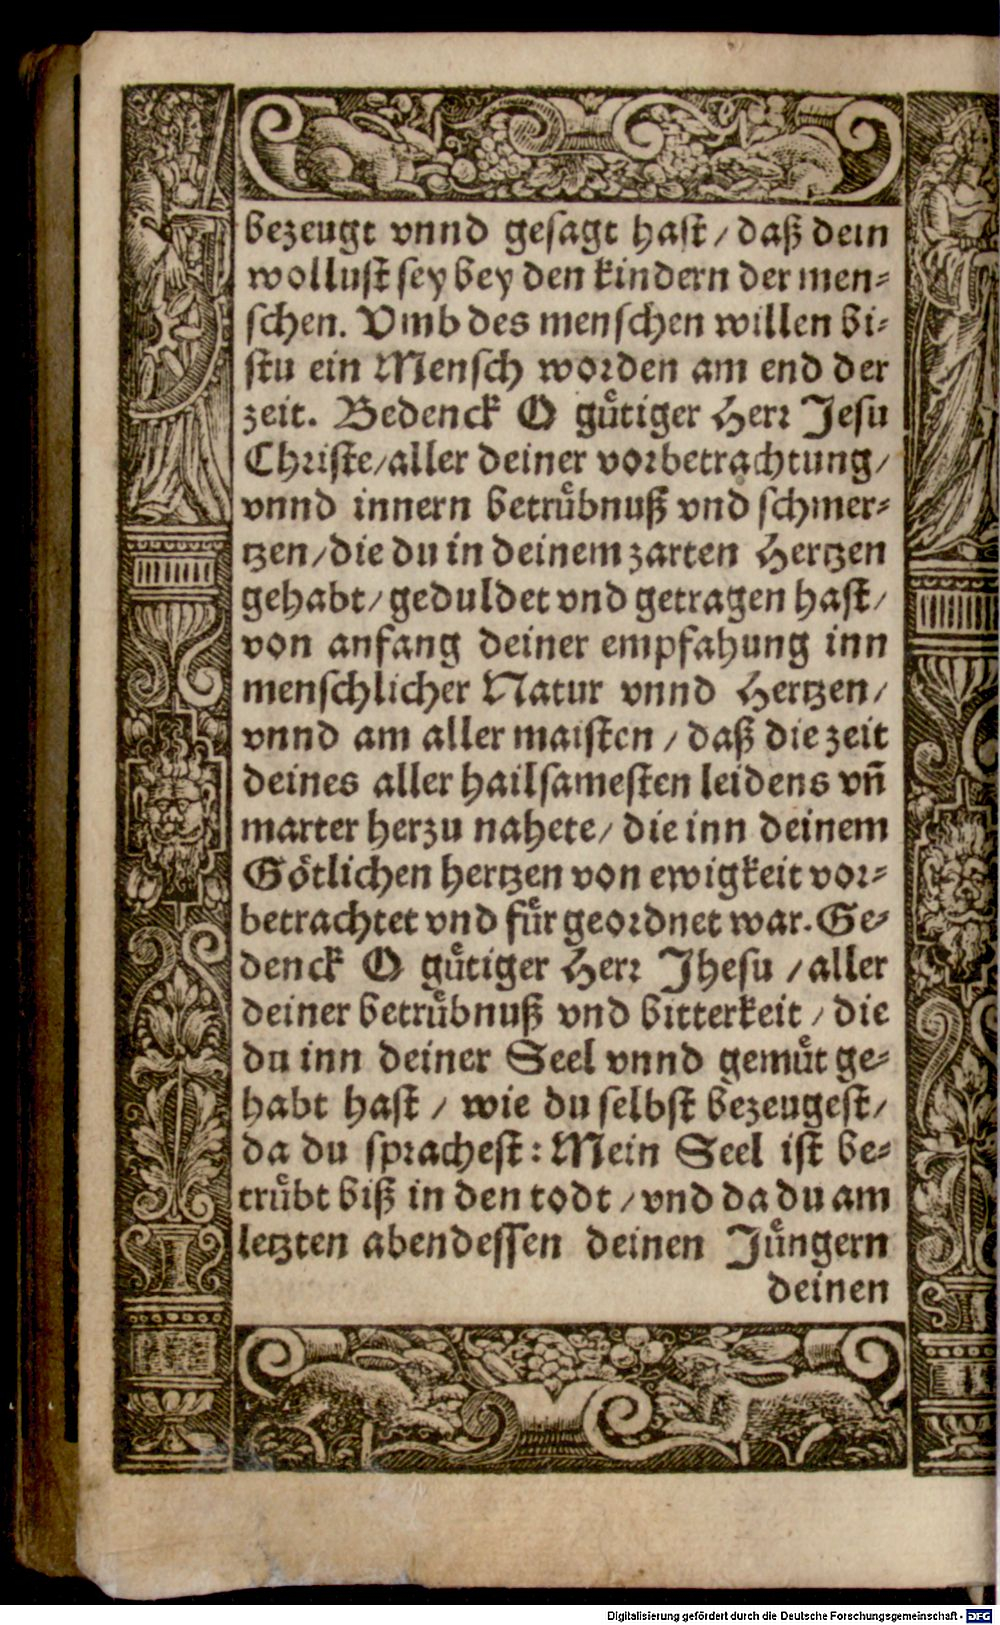 bezeugt vnnd gesagt hast / daß dein
wollust sey bey den kindern der men-
schen. Vmb des menschen willen bi-
stu ein Mensch worden am end der
zeit. Bedenck O guͤtiger Herr Jesu
Christe / aller deiner vorbetrachtung /
vnnd innern betruͤbnuß vnd schmer-
tzen / die du in deinem zarten Hertzen
gehabt / geduldet vnd getragen hast /
von anfang deiner empfahung inn
menschlicher Natur vnnd Hertzen /
vnnd am aller maisten / daß die zeit
deines aller hailsamesten leidens vñ
marter herzu nahete / die inn deinem
Goͤtlichen hertzen von ewigkeit vor-
betrachtet vnd fuͤr geordnet war. Ge-
denck O guͤtiger Herr Jhesu / aller
deiner betruͤbnuß vnd bitterkeit / die
du inn deiner Seel vnnd gemuͤt ge-
habt hast / wie du selbst bezeugest /
da du sprachest: Mein Seel ist be-
truͤbt biß in den todt / vnd da du am
letzten abendessen deinen Juͤngern
deinen
Digitalisierung gefördert durch die Deutsche Forschungsgemeinschaft - DFG